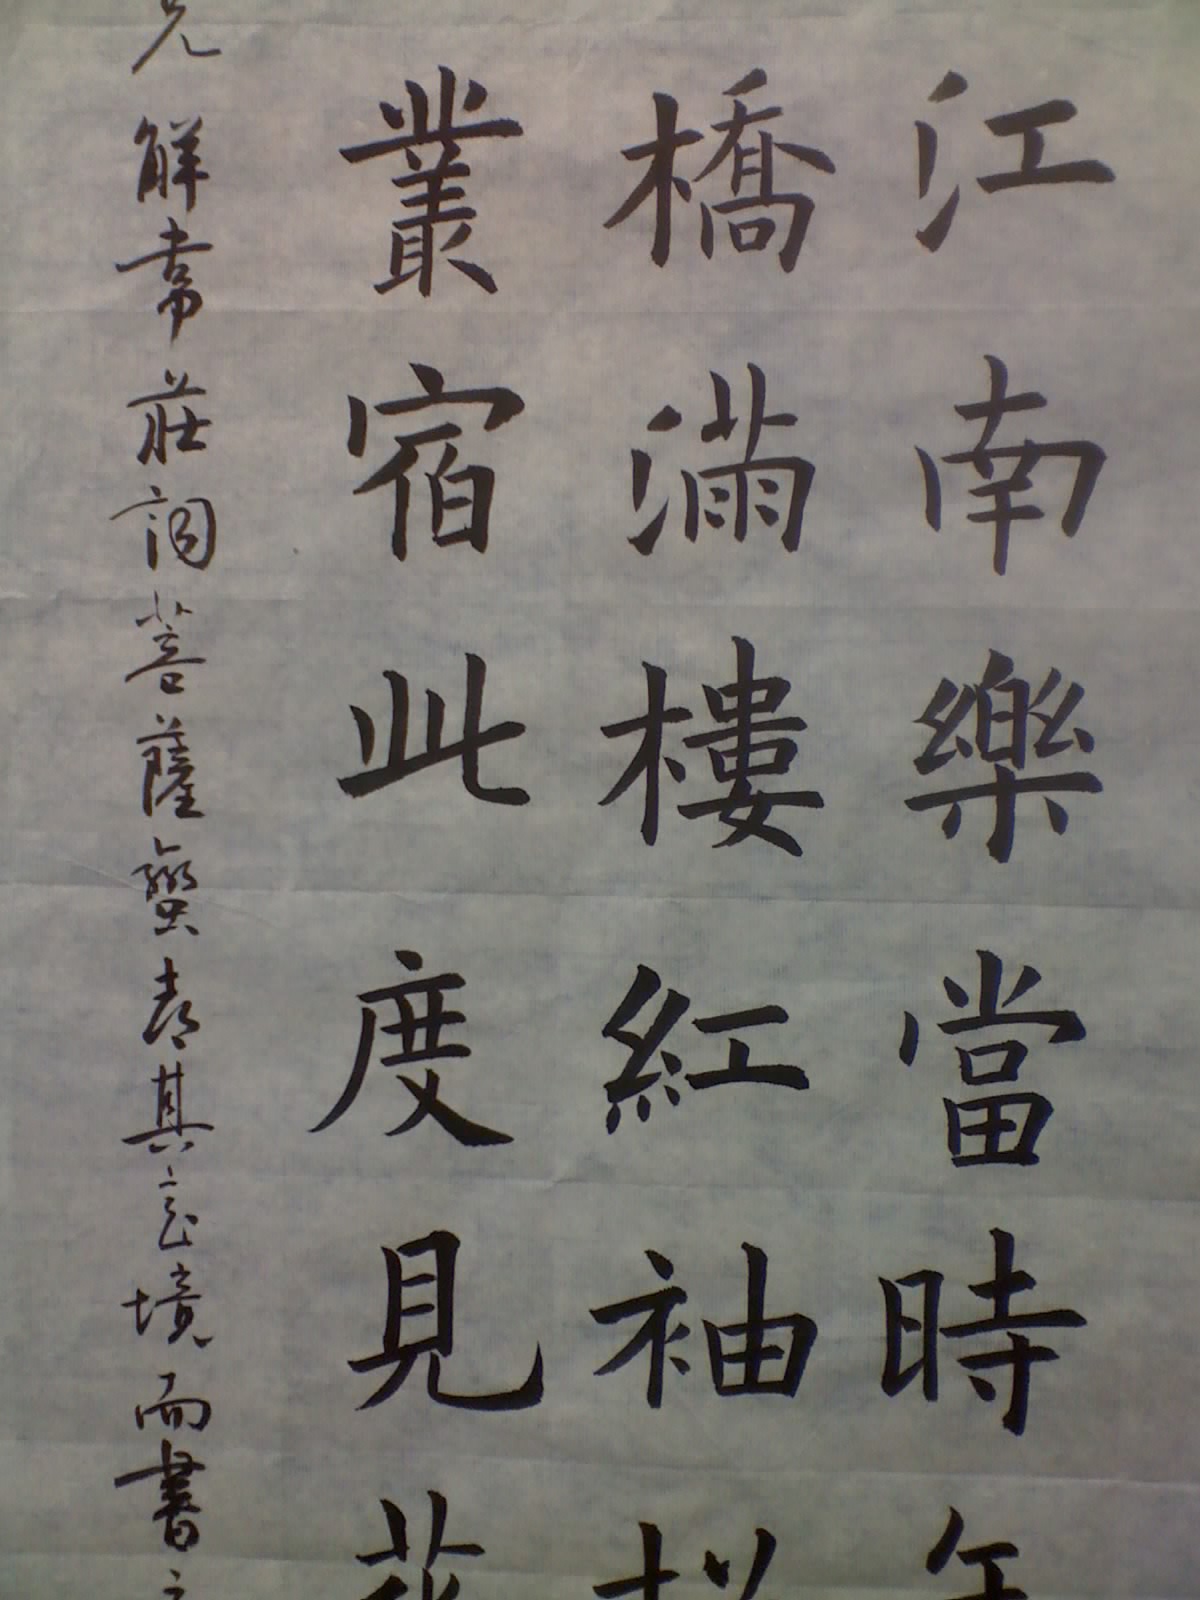 江南樂當時
橋滿樓紅袖
叢宿此度見
解韋莊詞菩薩蠻其意境而書